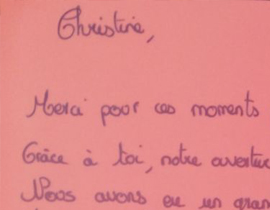 Christine,
Merci pour ces moments
Grâce à toi, notre aventur
Nous avons eu un gran